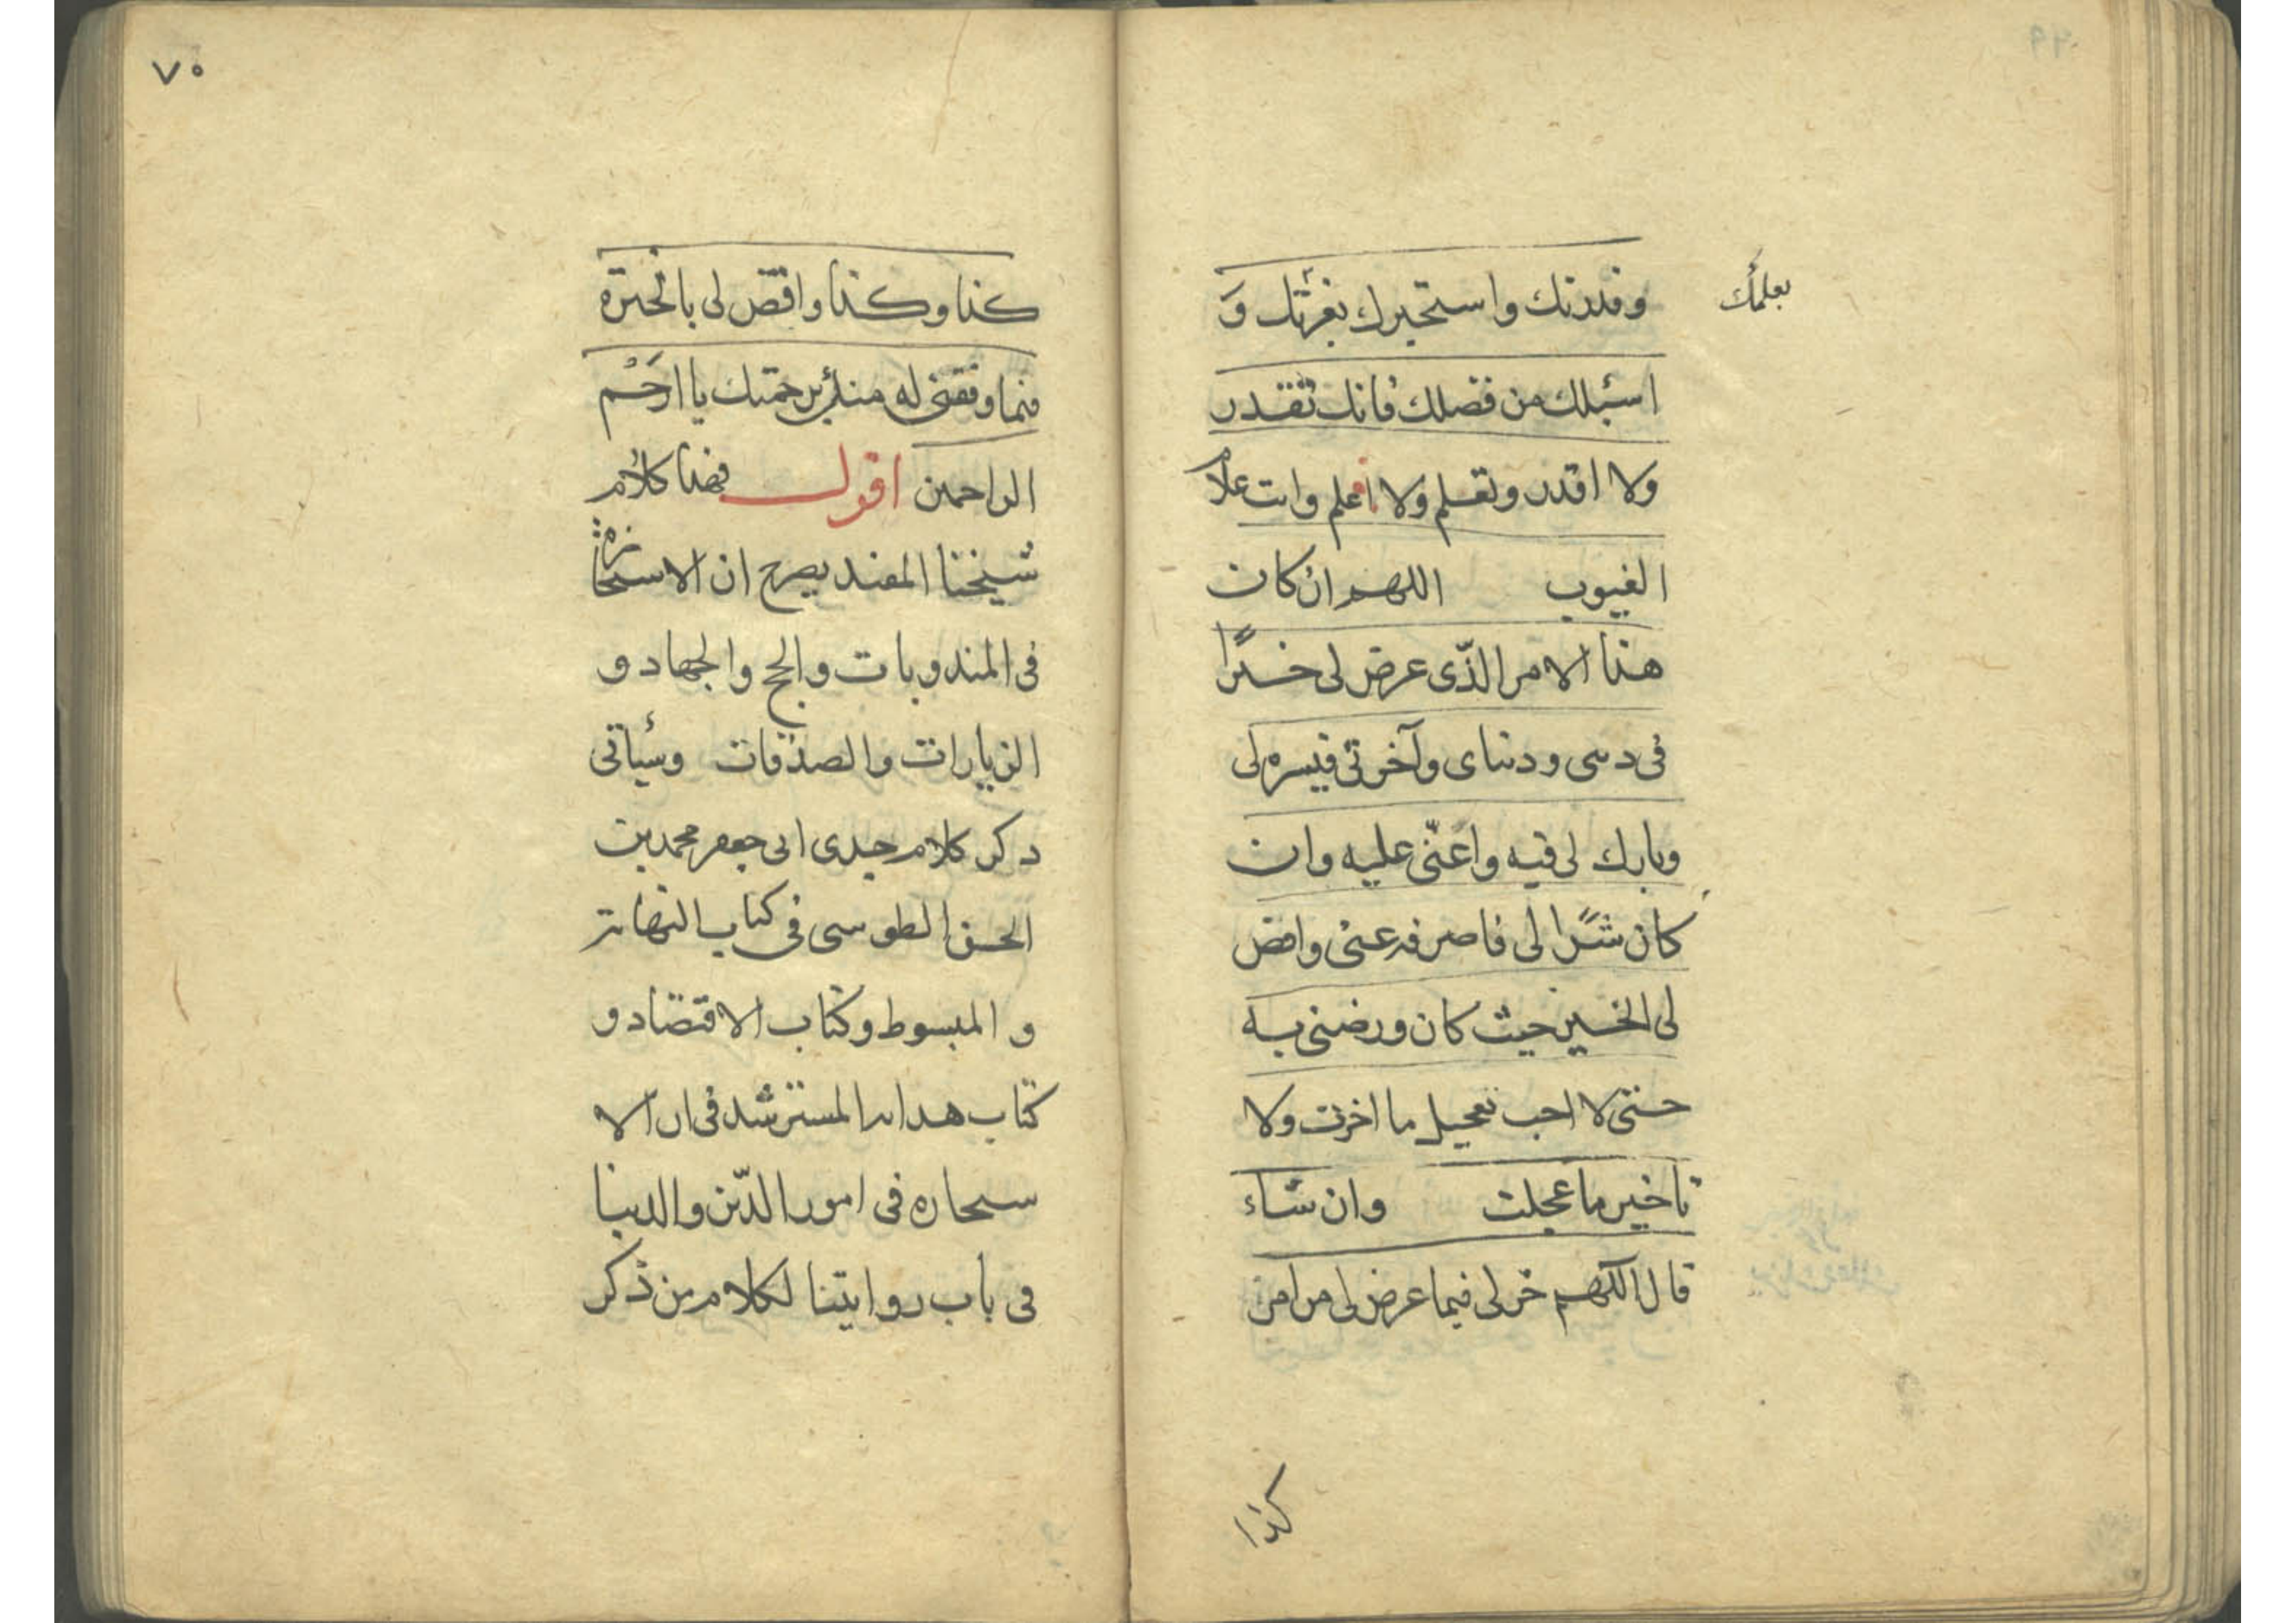 بعلمك
وقدرتك واستخيرك بعزتك وَ
اسئلك من فضلك فانك تقدر
ولا اقدر وتعلم ولا اعلم وانت علّام
الغيوب اللهم ان كان
هذا الامر الذّى عرض لى خيرًا
فى دىنى ودنياى وآخرتى فيسره لى
وبارك لى فيه واعنّى عليه وان
كان شرًّا لى فاصرفه عنى واقض
لى الخير حيث كان ورضنى به
حتى لا احب تعجيل ما اخرت ولا
تاخير ما عجلت وان شاء
قال اللّهم خر لى فيما عرض لى من امر
كذا
٧٠
كذا وكذا واقض لى بالخيرة
فيما وفقتنى له منه برحمتك يا ارحَم
الراحمين اقول فهذا كلام
شيخنا المفيد يصرح ان الاستخارة
فى المندوبات والحج والجهاد و
الزيارات والصدقات وسيأتى
ذكر كلام جدى ابى جعفر محمد بن
الحسن الطوسى فى كتاب النهاية
و المبسوط وكتاب الاقتصاد و
كتاب هداية المسترشد فى ان الا
ستخاره فى امور الدّين والدينا
فى باب روايتنا لكلام من ذكر